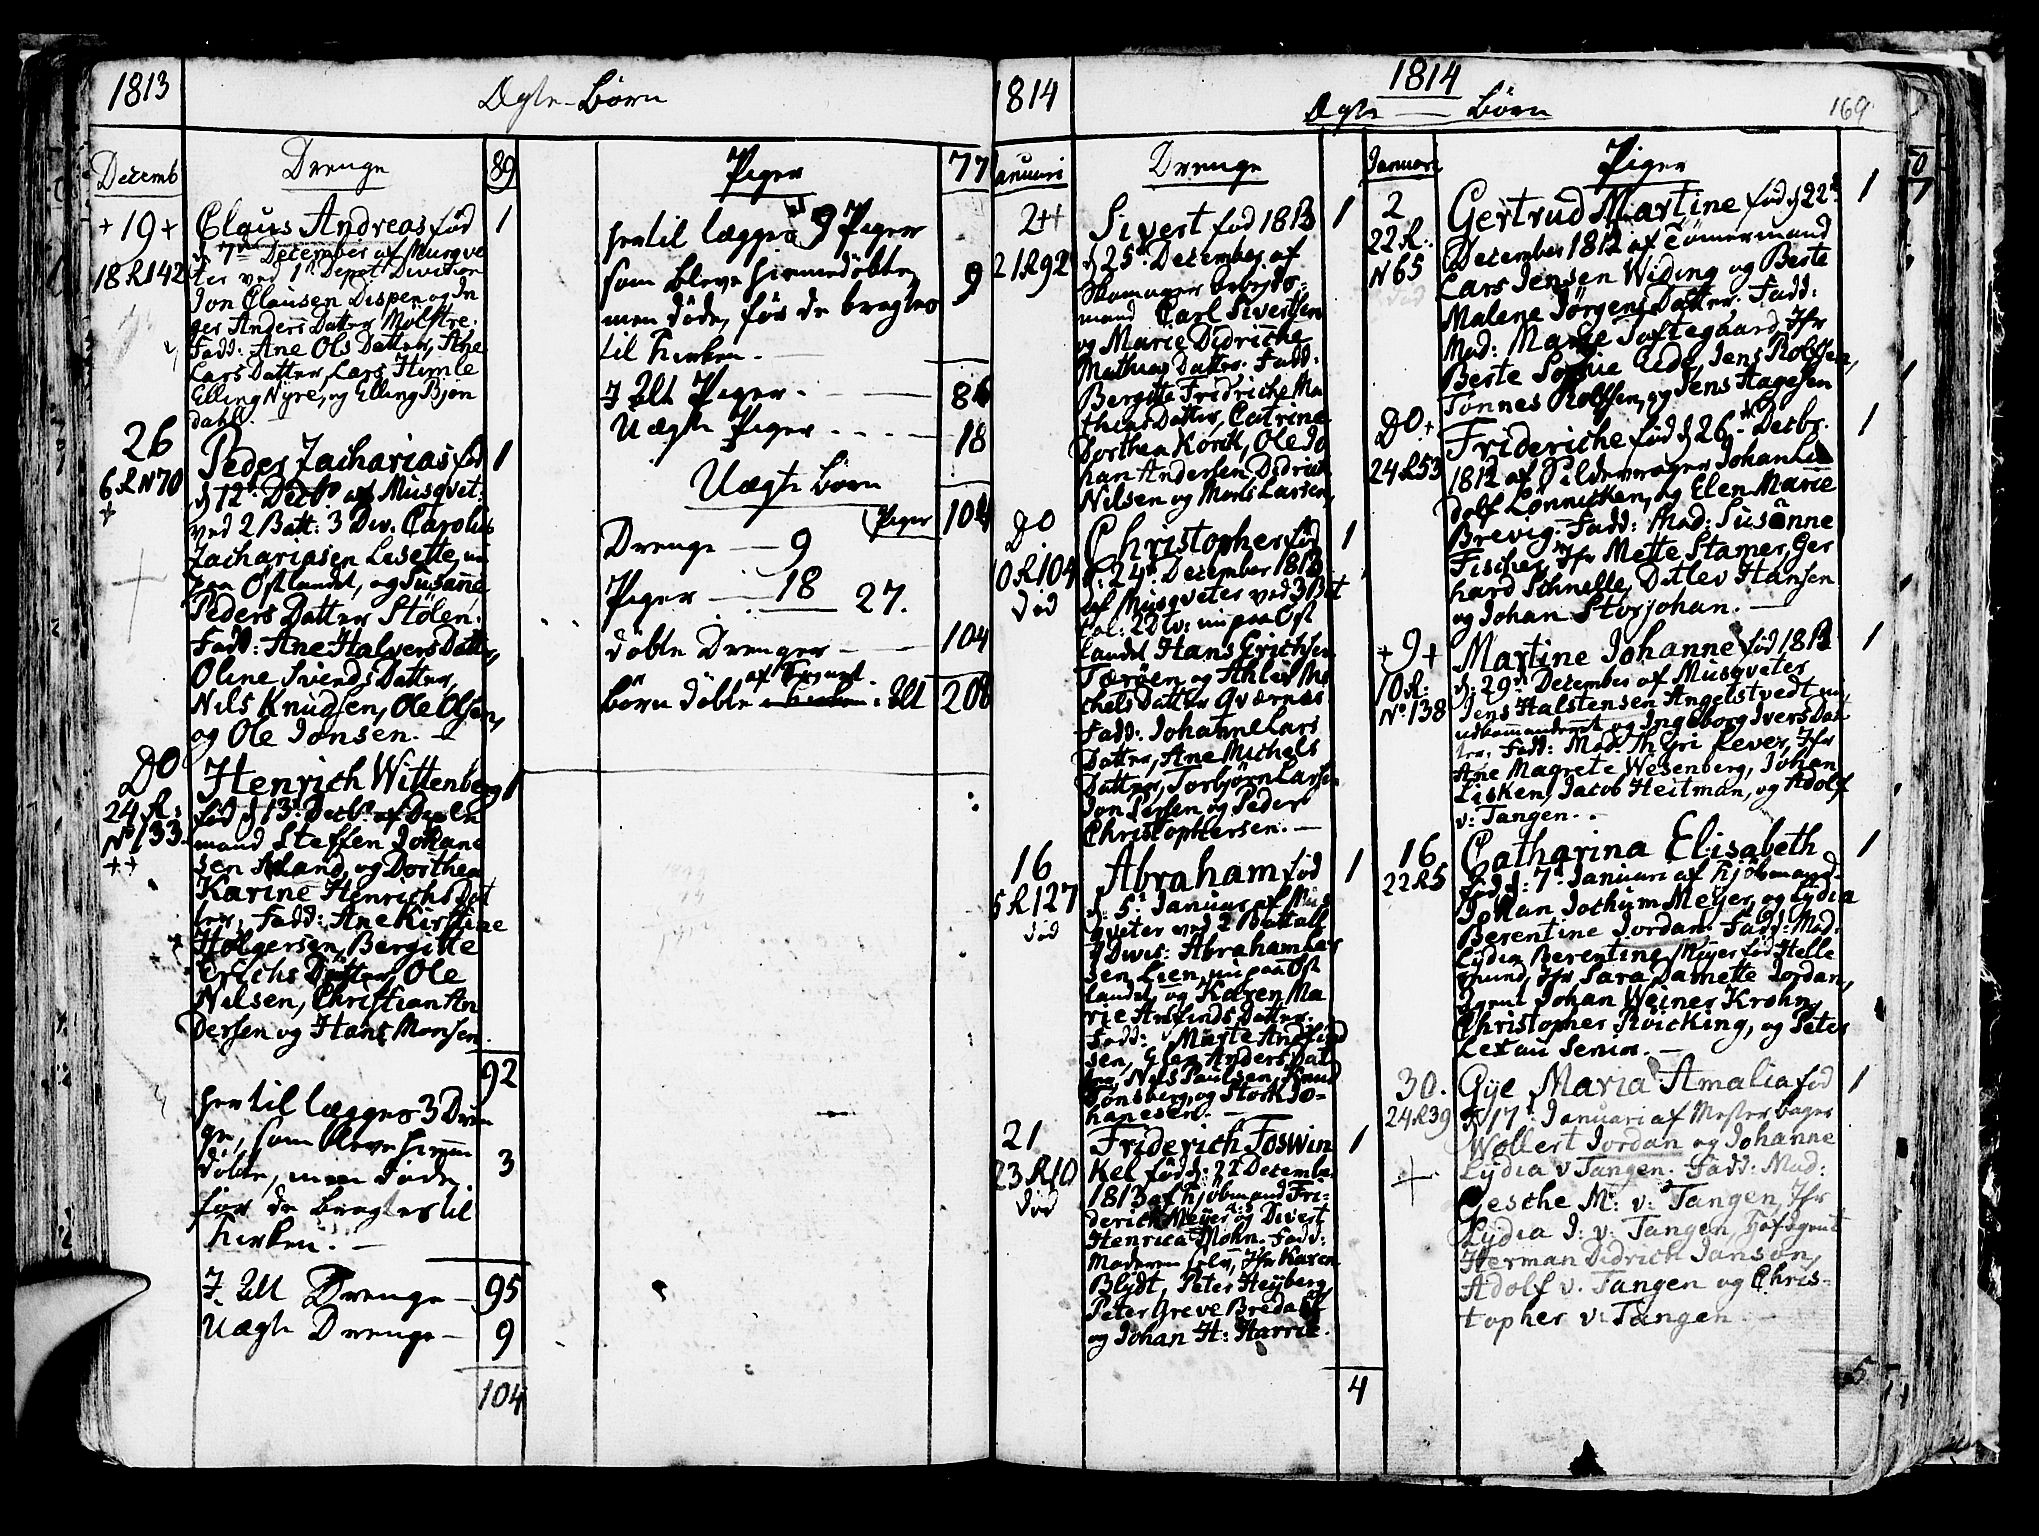 1813
Ægte-Børn
Decemb
Drenge
89
+19+
18R142
Claus Andreas fød
1
d. 7de December af Musqve
ter ved 1ste Depot Division
Jon Clausen Dispen og In
ger Anders Datter Mølstre.
Fadd: Ane Ols Datter, Ane
Lars Datter, Lars Himle
Elling Nyre, og Elling Bjøn
dahl.
26
6RN70
+
Peder Zacharias fød
1
d 12te Decbr af Musqvet:
ved 2 Batt: 3 Div. Carolus
Zachariasen Lisette, nu
paa Østlandet, og Susanne
Peders Datter Stølen.
Fadd: Ane Halvers Datter,
Oline Svends Datter,
Nils Knudsen, Ole Olsen,
og Ole Jonsen.
DO
24R:
No 133
++
Henrich Wittenberg
1
fød d 13de Decbr af
mand Steffen Johane
sen og Dorthea
Karine Henrichs Dat
ter, Fadd: Ane Kirstine
Holgersen, Bergitte
Erichs Datter, Ole
Nilsen, Christian An
dersen og Hans Monsen
92
hertil lægges 3 Dren
ge, som bleve hiemme
døbte, men døde,
3
før de bragtes til
Kirken.
I Alt Drenge
95
Uægte Drenge
9
104
Piger
77
hertil lægges 9 Piger
som bleve hiemmedøbte
9
men døde, før de bragtes
til Kirken.
I Alt Piger.
86
Uægte Piger
18
Uægte Børn
Piger
104
Drenge — 9
Piger — 18
27.
døbte Drenge
104
Børn døbte i Alt
208
1814
1814
169
Ægte — Børn
Januari
Drenge
2++
21R92
Sivert fød 1813
1
d 25de Decembr af
arbejds=
mand Carl Sivertsen
og Marie Didriche
Mathias Datter. Fadd:
Bergitte Fridriche Ma
thias Datter, Catrine
Dorthea Korck, Ole Jo
han Andersen, Didrich
Nilsen og Mons Larsen,
DO
10R104
død
Christopher fød
1
d: 24de December 1813
af Musqveter ved 3 Bat
tal: 2 Div: nu paa Øst
landet Hans Erichsen
Færøen og Ahlis Mi
chels Datter Qværnes
Fadd: Johanne Lars
Datter, Ane Michels
Datter, Torbjørn Larsen
Jon Persen og Peder
Christophersen.
16
5R127
død
Abraham fød
1
d: 5te Januar af Mus
qveter ved 2 Battall
Divis: Abraham Lar
sen Lien, nu paa Øst
landet, og Karen Ma
rie Amunds Datter.
Fadd: Marte
sen, Elen Anders Dat
ter, Nils Paulsen, Knud
Tønsberg, og Stork Jo=
hanesen.
21
23R10
død
Friderich Foswin
1
Kel fød d: 21 Decembr
1813 af Kjøbmand Fri=
derich Meyer og Divert
Henrica Mohn. Fadd:
Moderen selv, Jfr Karen
Blydt, Peter Heyberg
Peter Greve Bredahl
og Johan H: Harrie.
4
Januari
Piger
2
22R:
N65
død
Gertrud Martine fød d 22de
1
December 1812 af Tømermand
Lars Jensen Widing og Berte
Malene Jørgens Datter. Fadd:
Mad: Marie Toftegaard, Jfr
Berte Sophie Ude, Jens Rolfsen,
Tønnes Rolfsen, og Jens Aagesen
DO+
24R53
Frideriche fød d 26de Decbr.
1
1812 af Pildermager Johan Lu
dolf Lønnicken, og Elen Marie
Brevig. Fadd: Mad: Susanne
Fischer, Jfr Mette Stamer, Ger
hard Schnelle, Ditlev Hansen
og Johan Storjohan.
+9+
10R:
No. 138
Martine Johanne fød 1813
1
d: 29de December af Musqveter
Jens Halstensen Angelstvedt nu
udkomanderet og Ingeborg Ivers Dat
ter. Fadd: Mad: Lever, Jfr
Ane Magrete Wesenberg, Johan
Lisken, Jacob Heitman, og Adolf
v: Tangen.
16
22R5
Catharina Elisabeth
1
fød d: 7de Januari af Kjøbmand
Johan Jochum Meyer, og Lydia
Berentine Jordan. Fadd: Mad.
Lydia Berentine Meyer fød Helle
grund, Jfr Sara Damette Jordan,
Agent Johan Weiner Krohn,
Christopher Kvicking, og Peter
Lexau Senior.
30.
24R39
+
Gye Maria Amalia fød
1
d 17de Januari af Mester bager
Wollert Jordan og Johanne
Lydia v Tangen. Fadd: Mad:
Gesche M: v: Tangen, Jfr
Lydia I: v: Tangen, Hof Agent
Herman Didrich Janson,
Adolf v. Tangen og Chris=
topher v: Tangen.
5